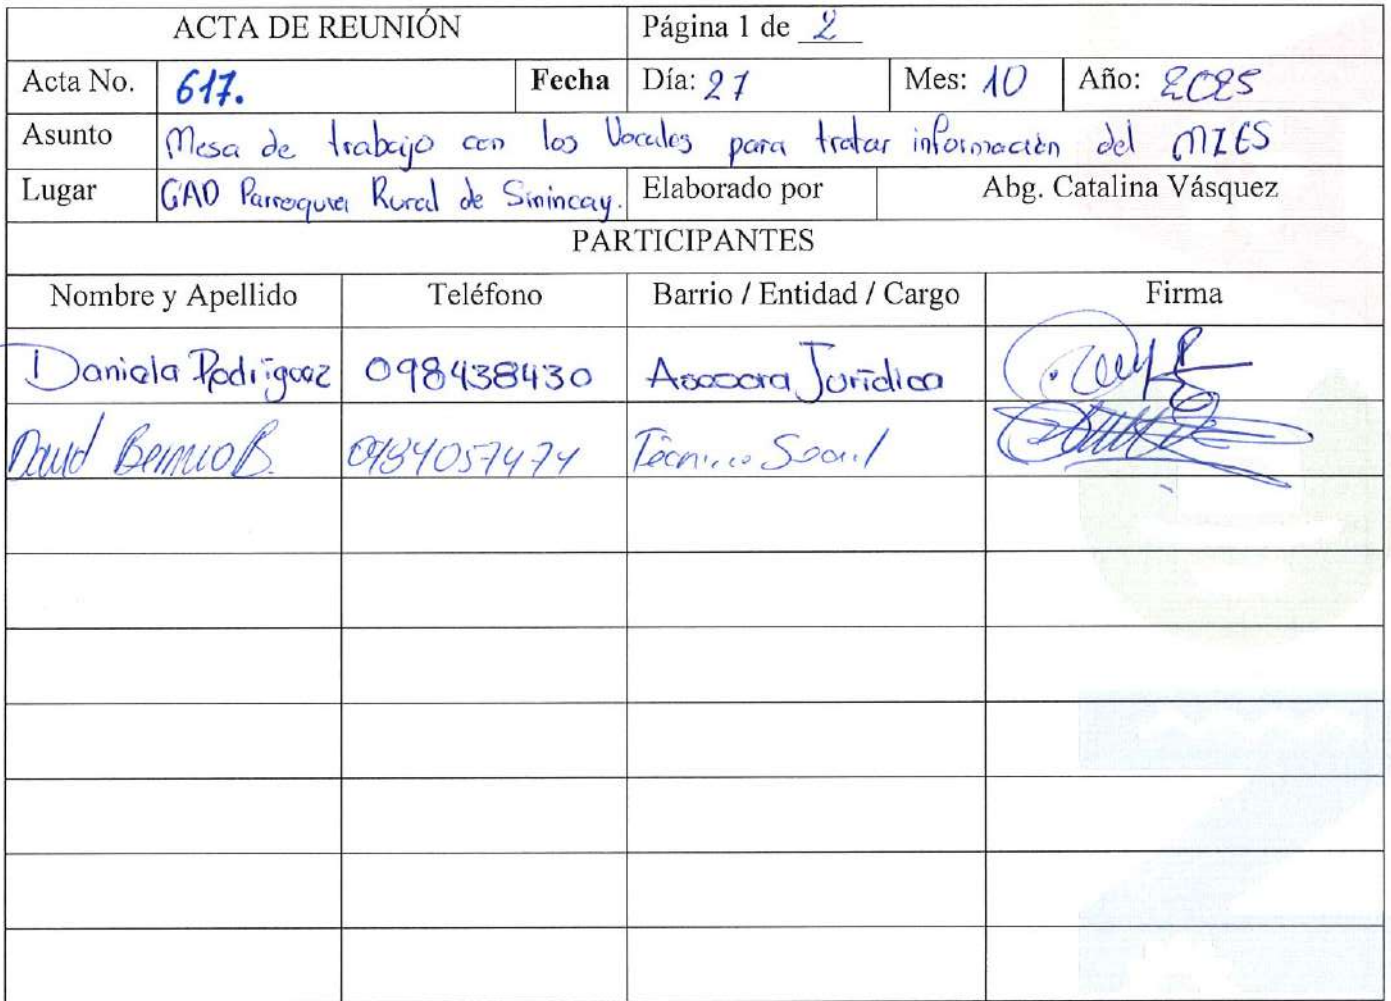 ACTA DE REUNIÓN Página 1 de 2
Acta No. 617. Fecha Día: 27 Mes: 10 Año: 2025
Asunto Mesa de trabajo con los Vocales para tratar información del MIES
Lugar GAD Parroquia Rural de Sinincay. Elaborado por Abg. Catalina Vásquez
PARTICIPANTES
Nombre y Apellido Teléfono Barrio / Entidad / Cargo Firma
Daniela Rodríguez 098438430 Asesora Jurídica
David B. 0984057474 Técnico Social